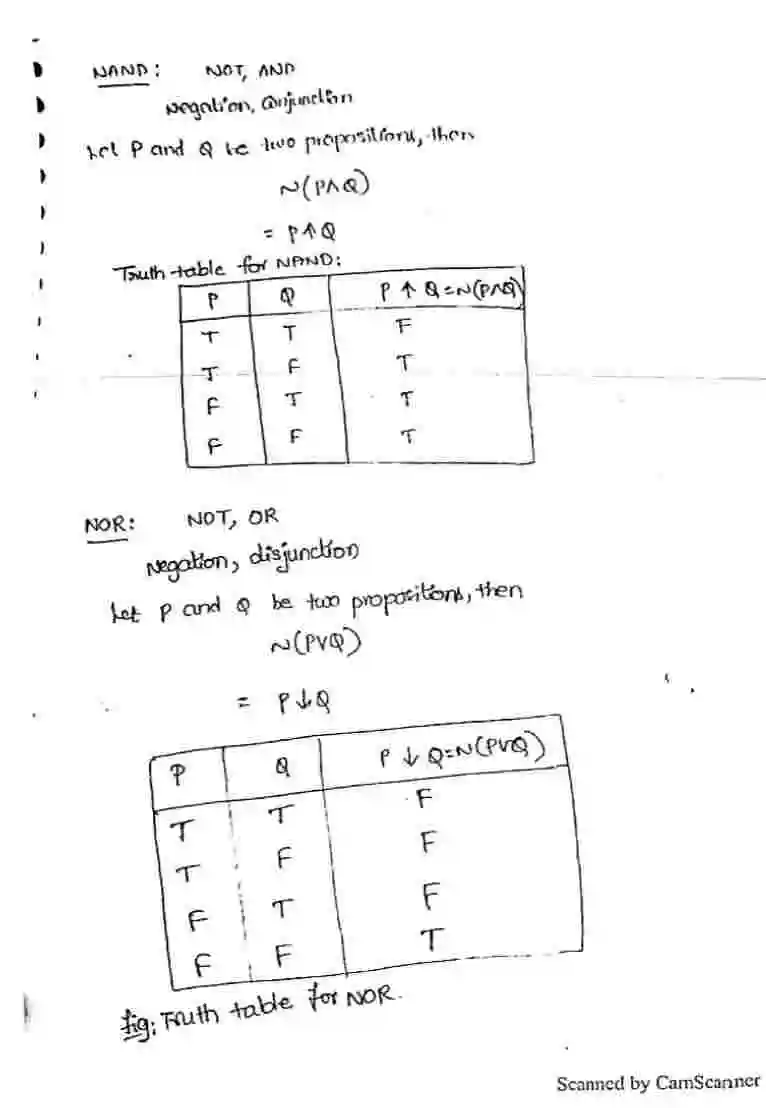 NAND: NOT, AND
Negation, Conjunction
Let P and Q be two propositions, then
~(P∧Q)
= P↑Q
Truth table for NAND:
P Q P ↑ Q=~(P∧Q)
T T F
T F T
F T T
F F T
NOR: NOT, OR
Negation, disjunction
Let P and Q be two propositions, then
~(P∨Q)
= P↓Q
P Q P ↓ Q=~(P∨Q)
T T F
T F F
F T F
F F T
fig: Truth table for NOR.
Scanned by CamScanner